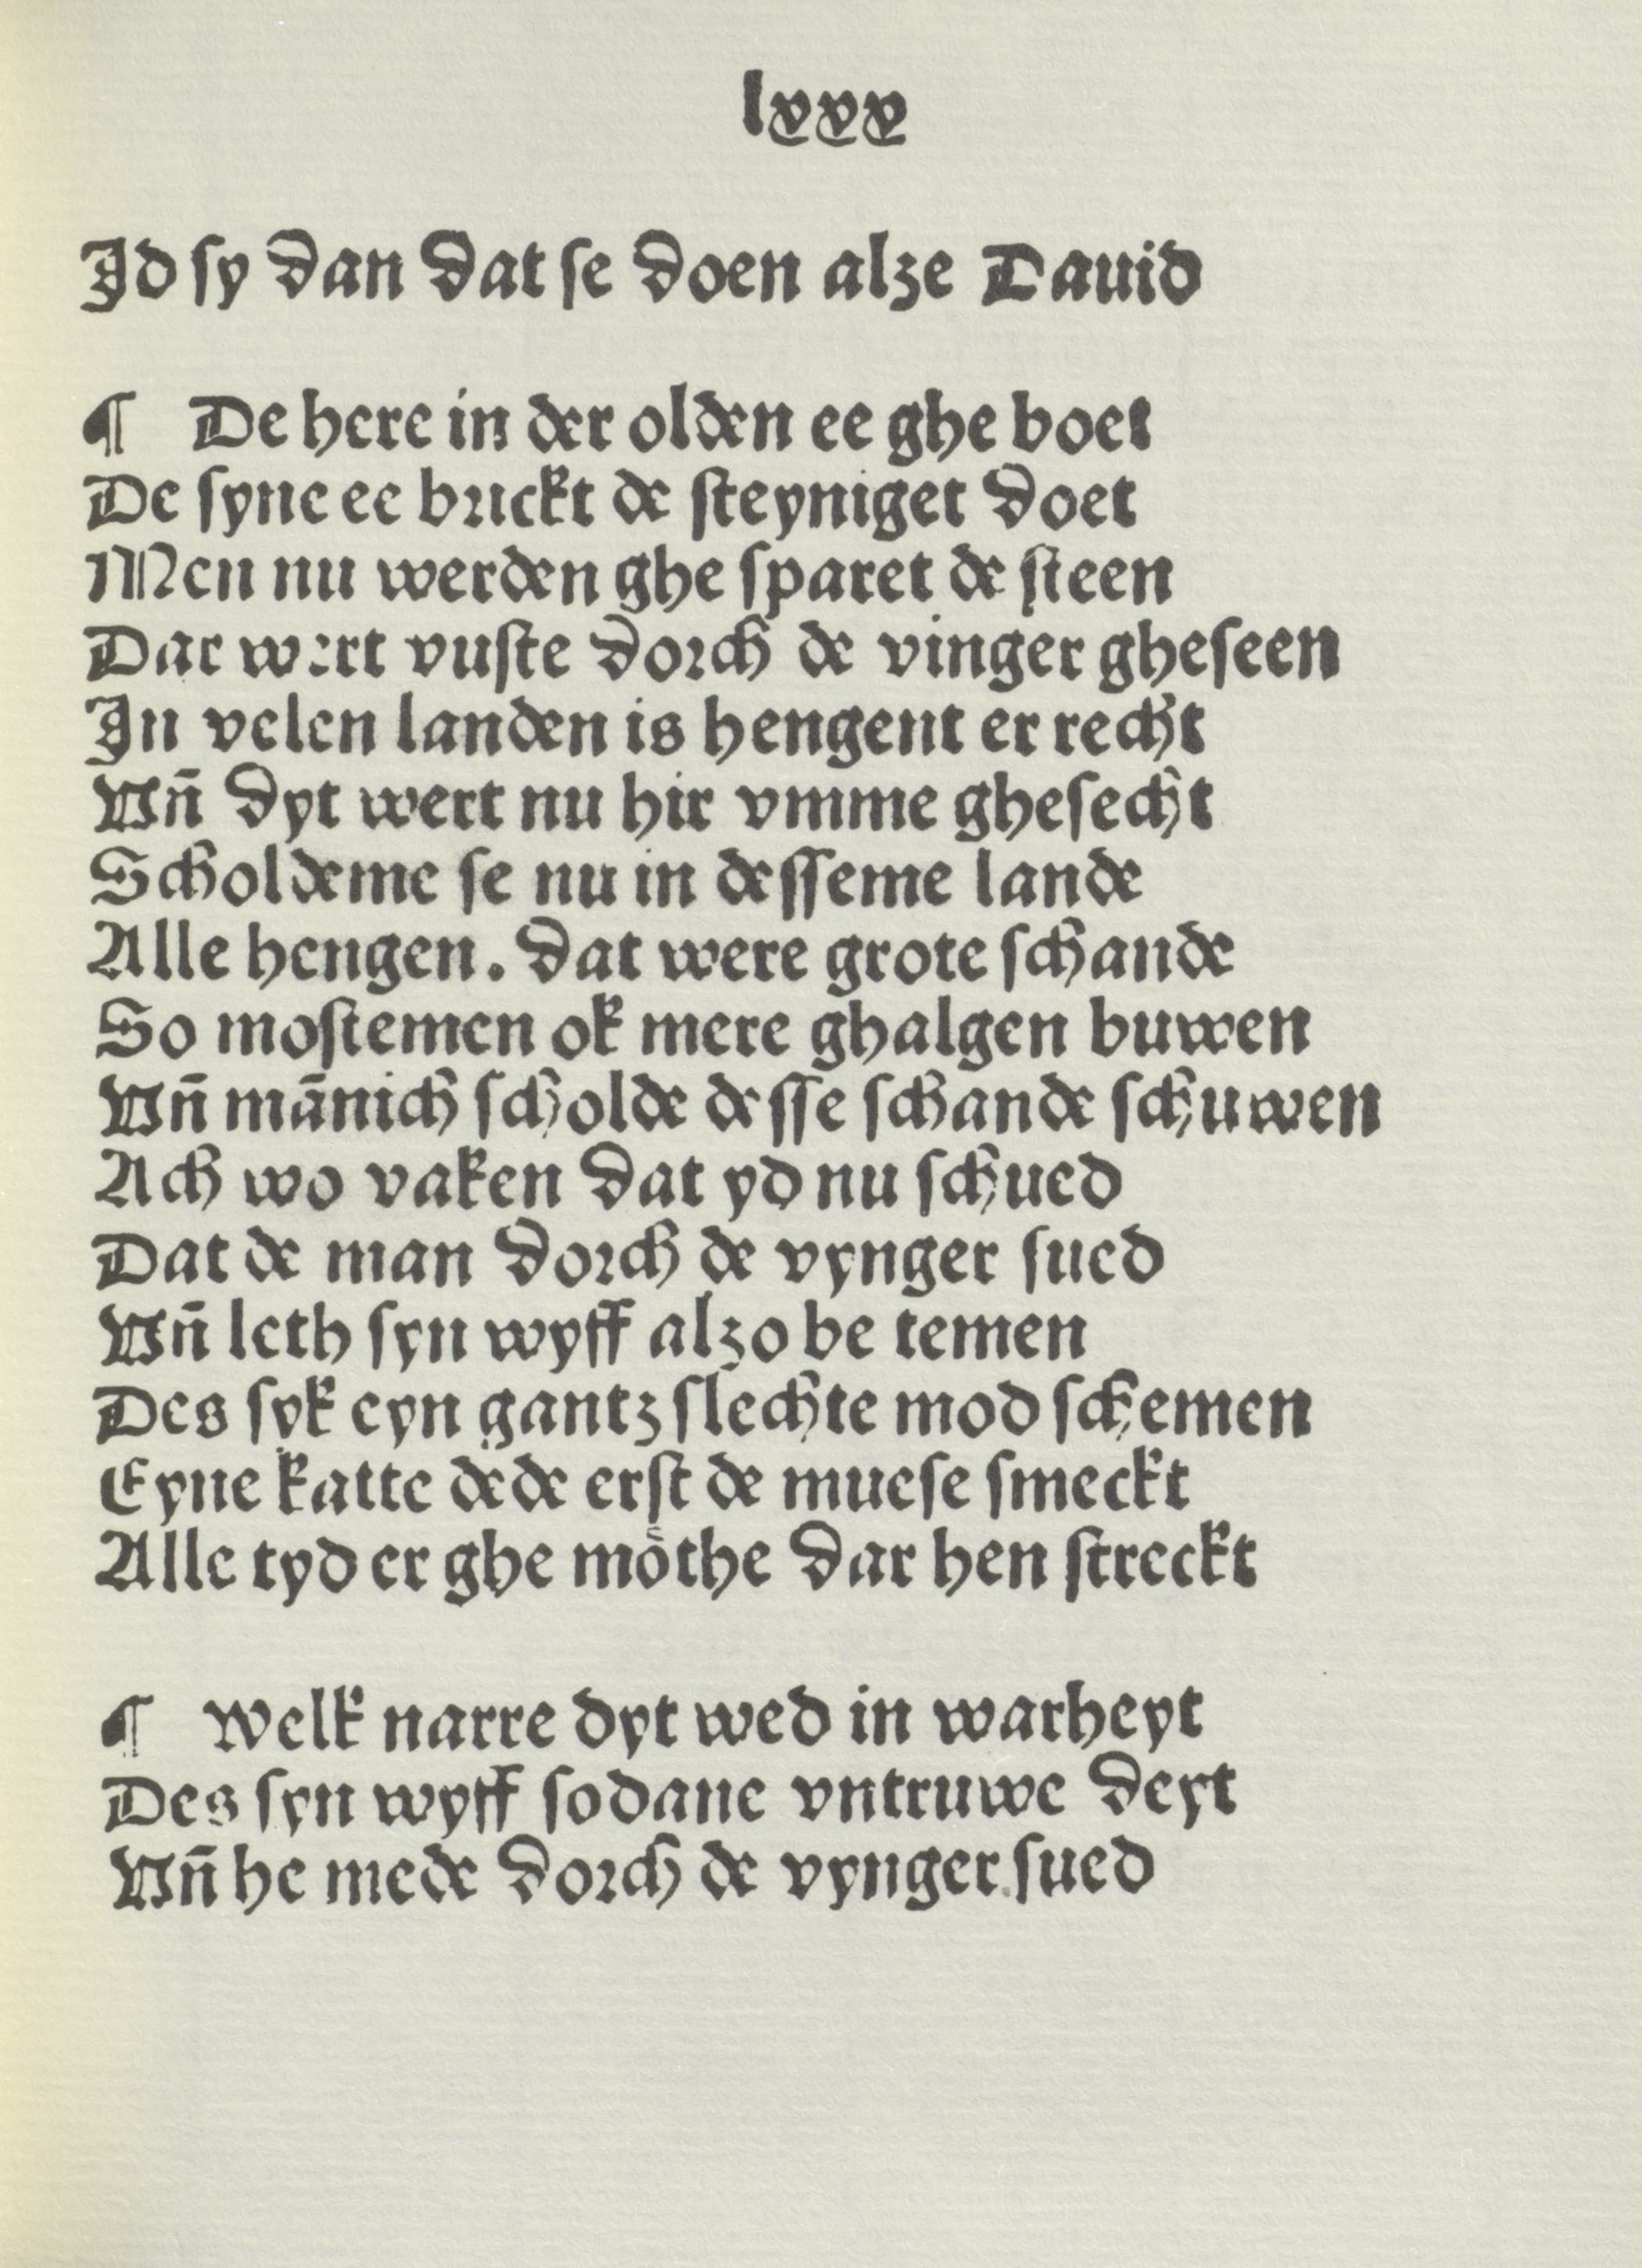 lxxx
Jd sy dan dat se doen alze Dauid
¶ De here in der olden ee ghe boet
De syne ee brickt de steyniget doet
Men nu werden ghe sparet de steen
Dar wert vuste dorch de vinger gheseen
In velen landen is hengent er recht
Vn̄ dyt wert nu hir vmme ghesecht
Scholdeme se nu in desseme lande
Alle hengen. dat were grote schande
So mostemen ok mere ghalgen buwen
Vn̄ mānich scholde desse schande schuwen
Ach wo vaken dat yd nu schued
Dat de man dorch de vynger sued
Vn̄ leth syn wyff alzo be temen
Des syk eyn gantz slechte mod schemen
Eyne katte dede erst de muese smeckt
Alle tyd er ghe moͤthe dar hen streckt
¶ Welk narre dyt wed in warheyt
Des syn wyff sodane vntruwe deyt
Vn̄ he mede dorch de vynger sued